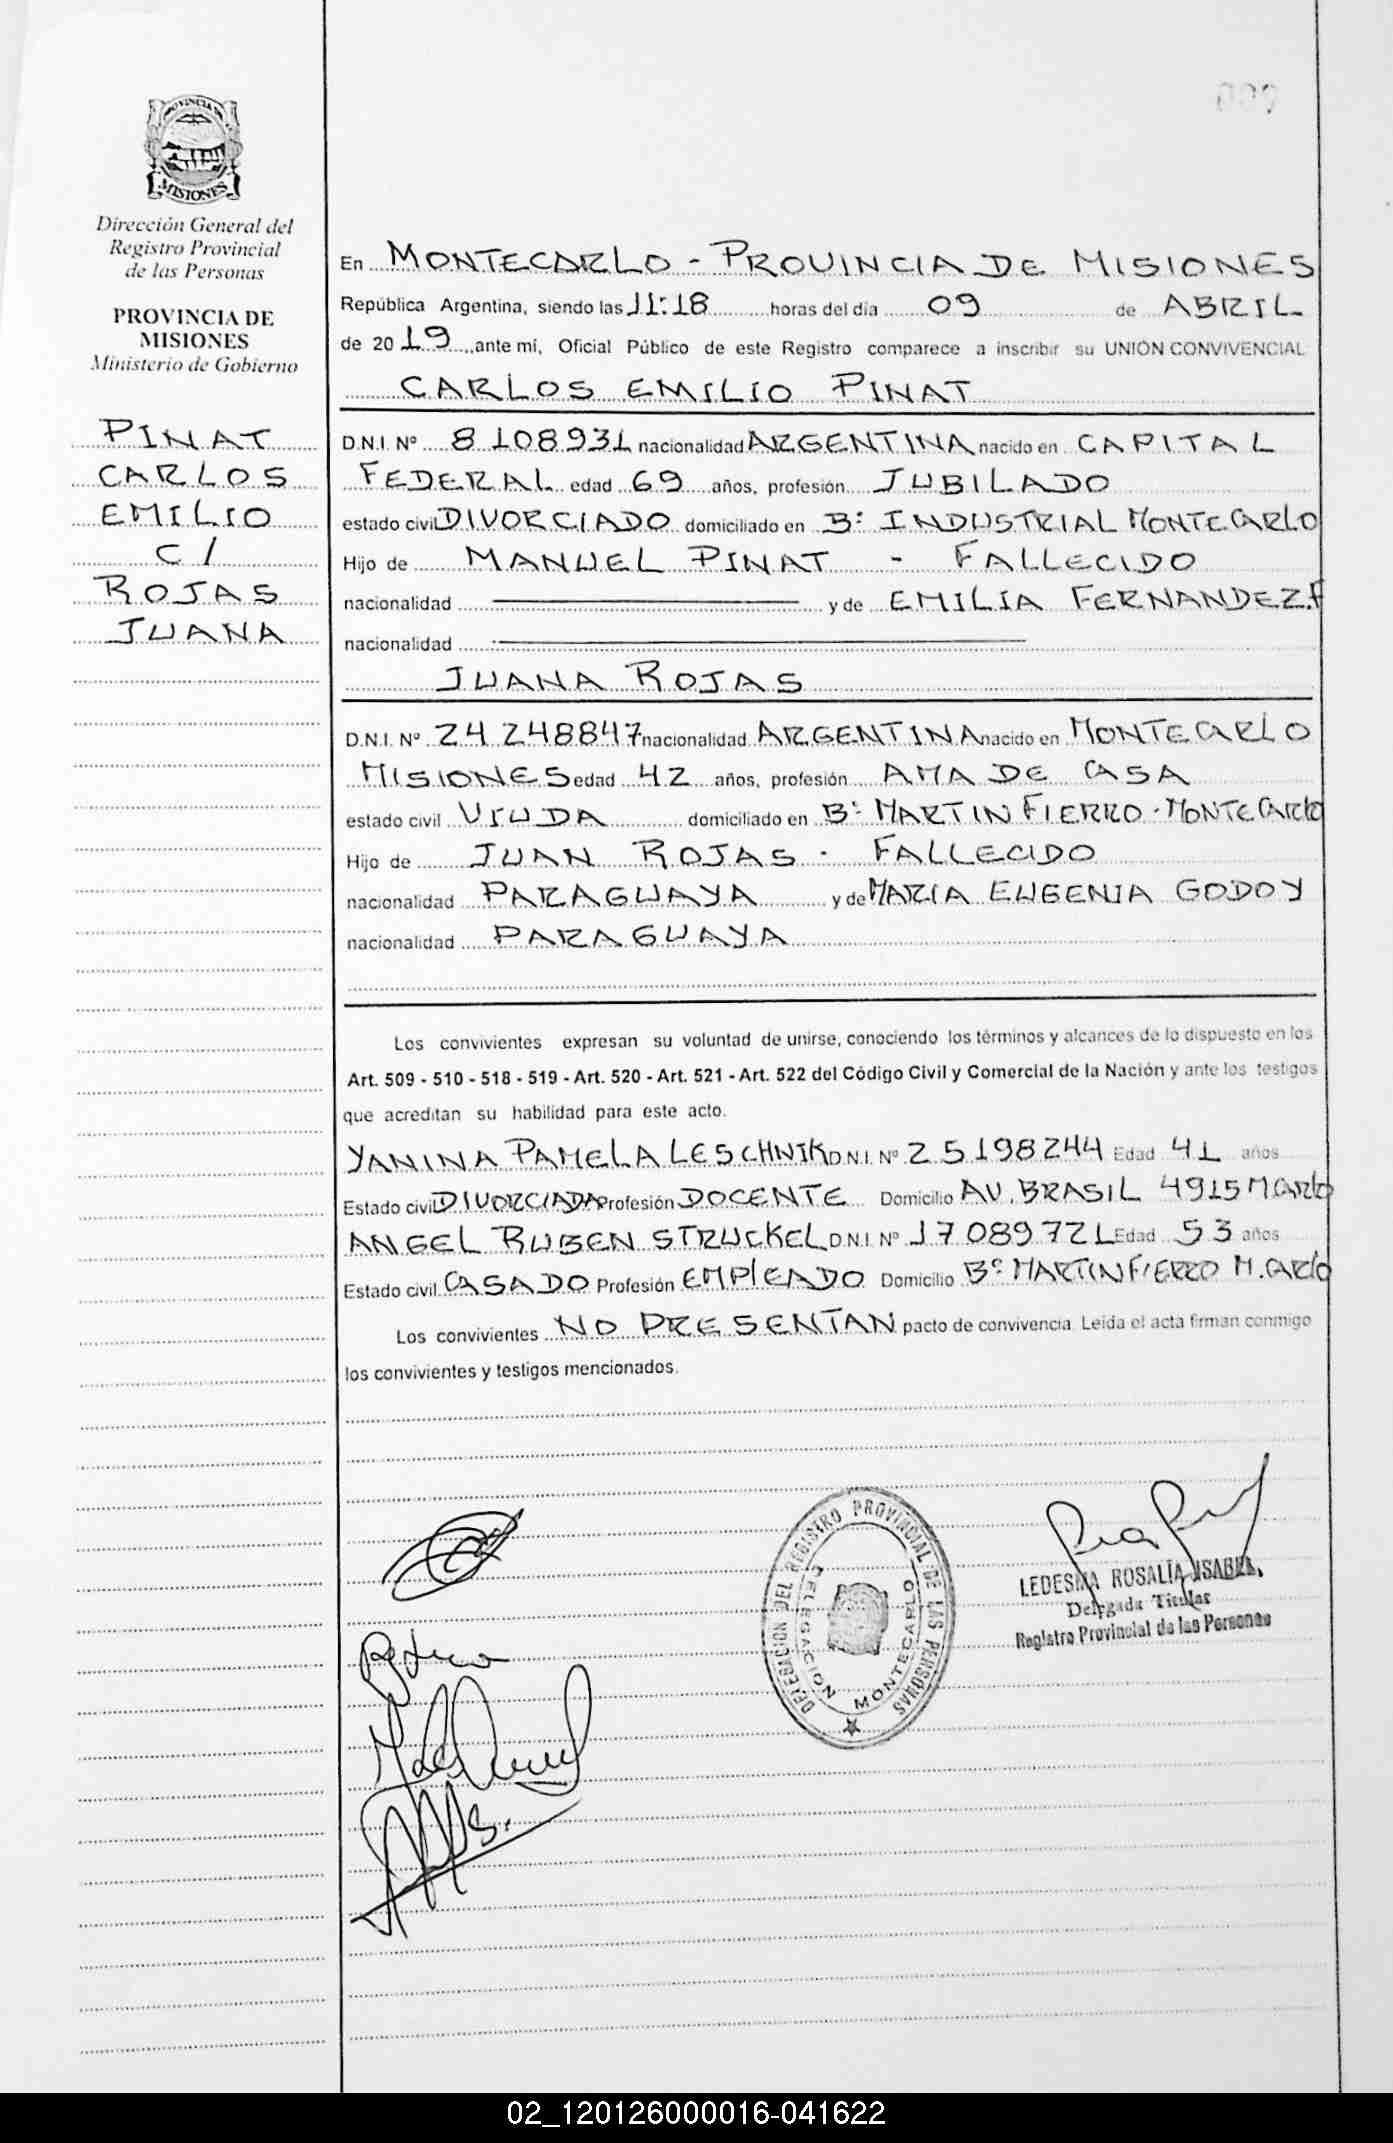 PROVINCIA DE
MISIONES
Dirección General del
Registro Provincial
de las Personas
PROVINCIA DE
MISIONES
Ministerio de Gobierno
PINAT
CARLOS
EMILIO
C/
ROJAS
JUANA
En MONTECARLO - PROVINCIA DE MISIONES
República Argentina, siendo las 11:18 horas del día 09 de ABRIL
de 2019, ante mí, Oficial Público de este Registro comparece a inscribir su UNION CONVIVENCIAL
CARLOS EMILIO PINAT
D.N.I. Nº 8108931 nacionalidad ARGENTINA nacido en CAPITAL
FEDERAL edad 69 años, profesión JUBILADO
estado civil DIVORCIADO domiciliado en Bº INDUSTRIAL MONTECARLO
Hijo de MANUEL PINAT - FALLECIDO
nacionalidad y de EMILIA FERNANDEZ.F
nacionalidad
JUANA ROJAS
D.N.I. Nº 24248847 nacionalidad ARGENTINA nacido en MONTECARLO
MISIONES edad 42 años, profesión AMA DE CASA
estado civil VIUDA domiciliado en Bº MARTIN FIERRO - MONTECARLO
Hijo de JUAN ROJAS - FALLECIDO
nacionalidad PARAGUAYA y de MARIA EUGENIA GODOY
nacionalidad PARAGUAYA
Los convivientes expresan su voluntad de unirse, conociendo los términos y alcances de lo dispuesto en los
Art. 509 - 510 - 518 - 519 - Art. 520 - Art. 521 - Art. 522 del Código Civil y Comercial de la Nación y ante los testigos
que acreditan su habilidad para este acto.
YANINA PAMELA LESCHNIK D.N.I. Nº 25198244 Edad 41 años
Estado civil DIVORCIADA Profesión DOCENTE Domicilio AV. BRASIL 4915 M.CARLO
ANGEL RUBEN STRUCKEL D.N.I. Nº 17089721 Edad 53 años
Estado civil CASADO Profesión EMPLEADO Domicilio Bº MARTIN FIERRO M.CARLO
Los convivientes NO PRESENTAN pacto de convivencia. Leída el acta firman conmigo
los convivientes y testigos mencionados.
DELEGACION DEL REGISTRO PROVINCIAL DE LAS PERSONAS
DELEGACION MONTECARLO
LEDESMA ROSALIA ISABEL
Delegada Titular
Registro Provincial de las Personas
02_120126000016-041622